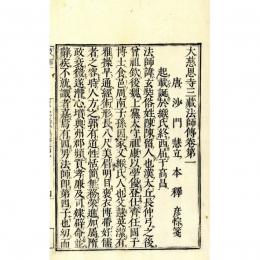 大慈恩寺三藏法師傳卷第一
唐沙門慧立本釋彥悰箋
起載誕於緱氏終西屆于高昌
法師諱玄奘俗姓陳陳留人也漢太丘長仲弓之後
曾祖欽後魏上黨太守祖康以學優登仕齊任國子
博士食邑周南子孫因家又緱氏人也父慧英潔有
雅操早通經術形長八尺美眉明目褒衣博帶好儒
者之容時人方之郭有道性恬簡無務榮進加屬隋
政衰微遂潛心墳典州郡頻貢孝廉及司隸辟命並
辭疾不就識者嘉焉有四男法師即第四子也幼而